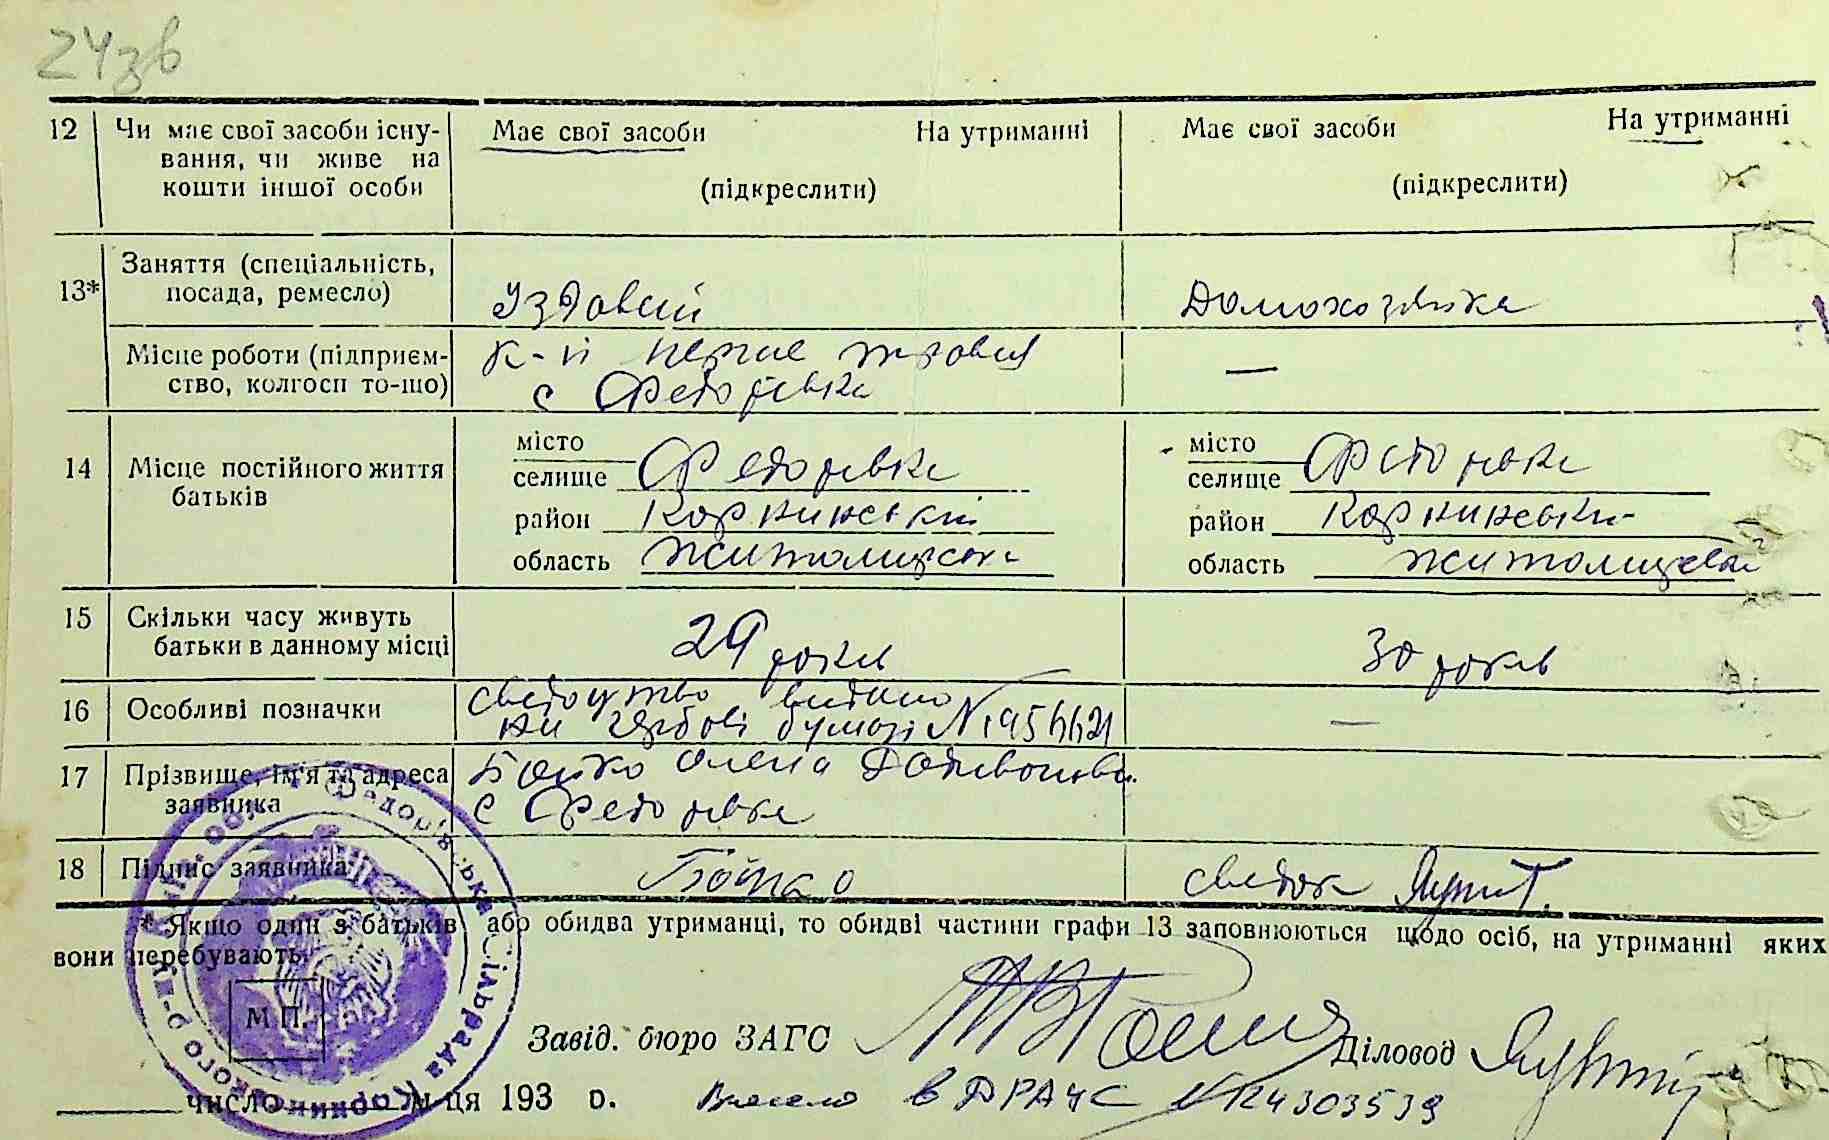 24зв
12 Чи має свої засоби існу- Має свої засоби На утриманні Має свої засоби На утриманні
вання, чи живе на
кошти іншої особи (підкреслити) (підкреслити)
13* Заняття (спеціальність,
посада, ремесло) Їздовий Домохозяйка
Місце роботи (підприєм- К-п перше травня —
ство, колгосп то-що) с Федорівка
14 Місце постійного життя місто Федорівка місто Федорівка
батьків селище селище
район Корнинський район Корнинськи
область Житомирська область Житомирська
15 Скільки часу живуть 29 років 30 років
батьки в данному місці
16 Особливі позначки видано —
на гербові бумазі N
17 Прізвище, ім'я та адреса Бойко Олена
заявника с Федорівка
18 Підпис заявника Бойко свідок
* Якщо один з батьків або обидва утриманці, то обидві частини графи 13 заповнюються щодо осіб, на утриманні яких
вони перебувають.
Федорівська сільрада Корнинського р-ну обл.
М.П.
Завід. бюро ЗАГС Діловод
число м-ця 193 р. Внесено в ДРАЦС №124303539